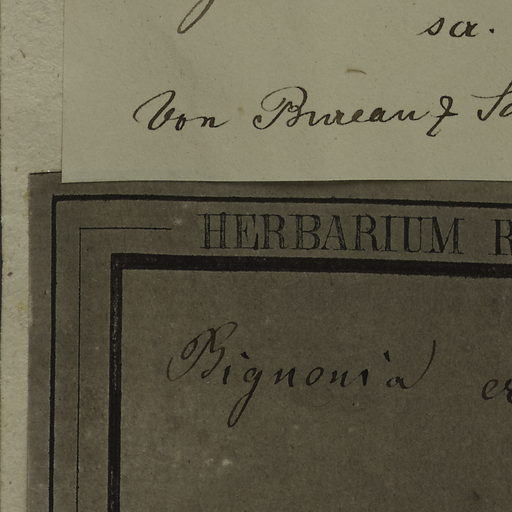 sa.
Von Bureau &
HERBARIUM R
Bignonia